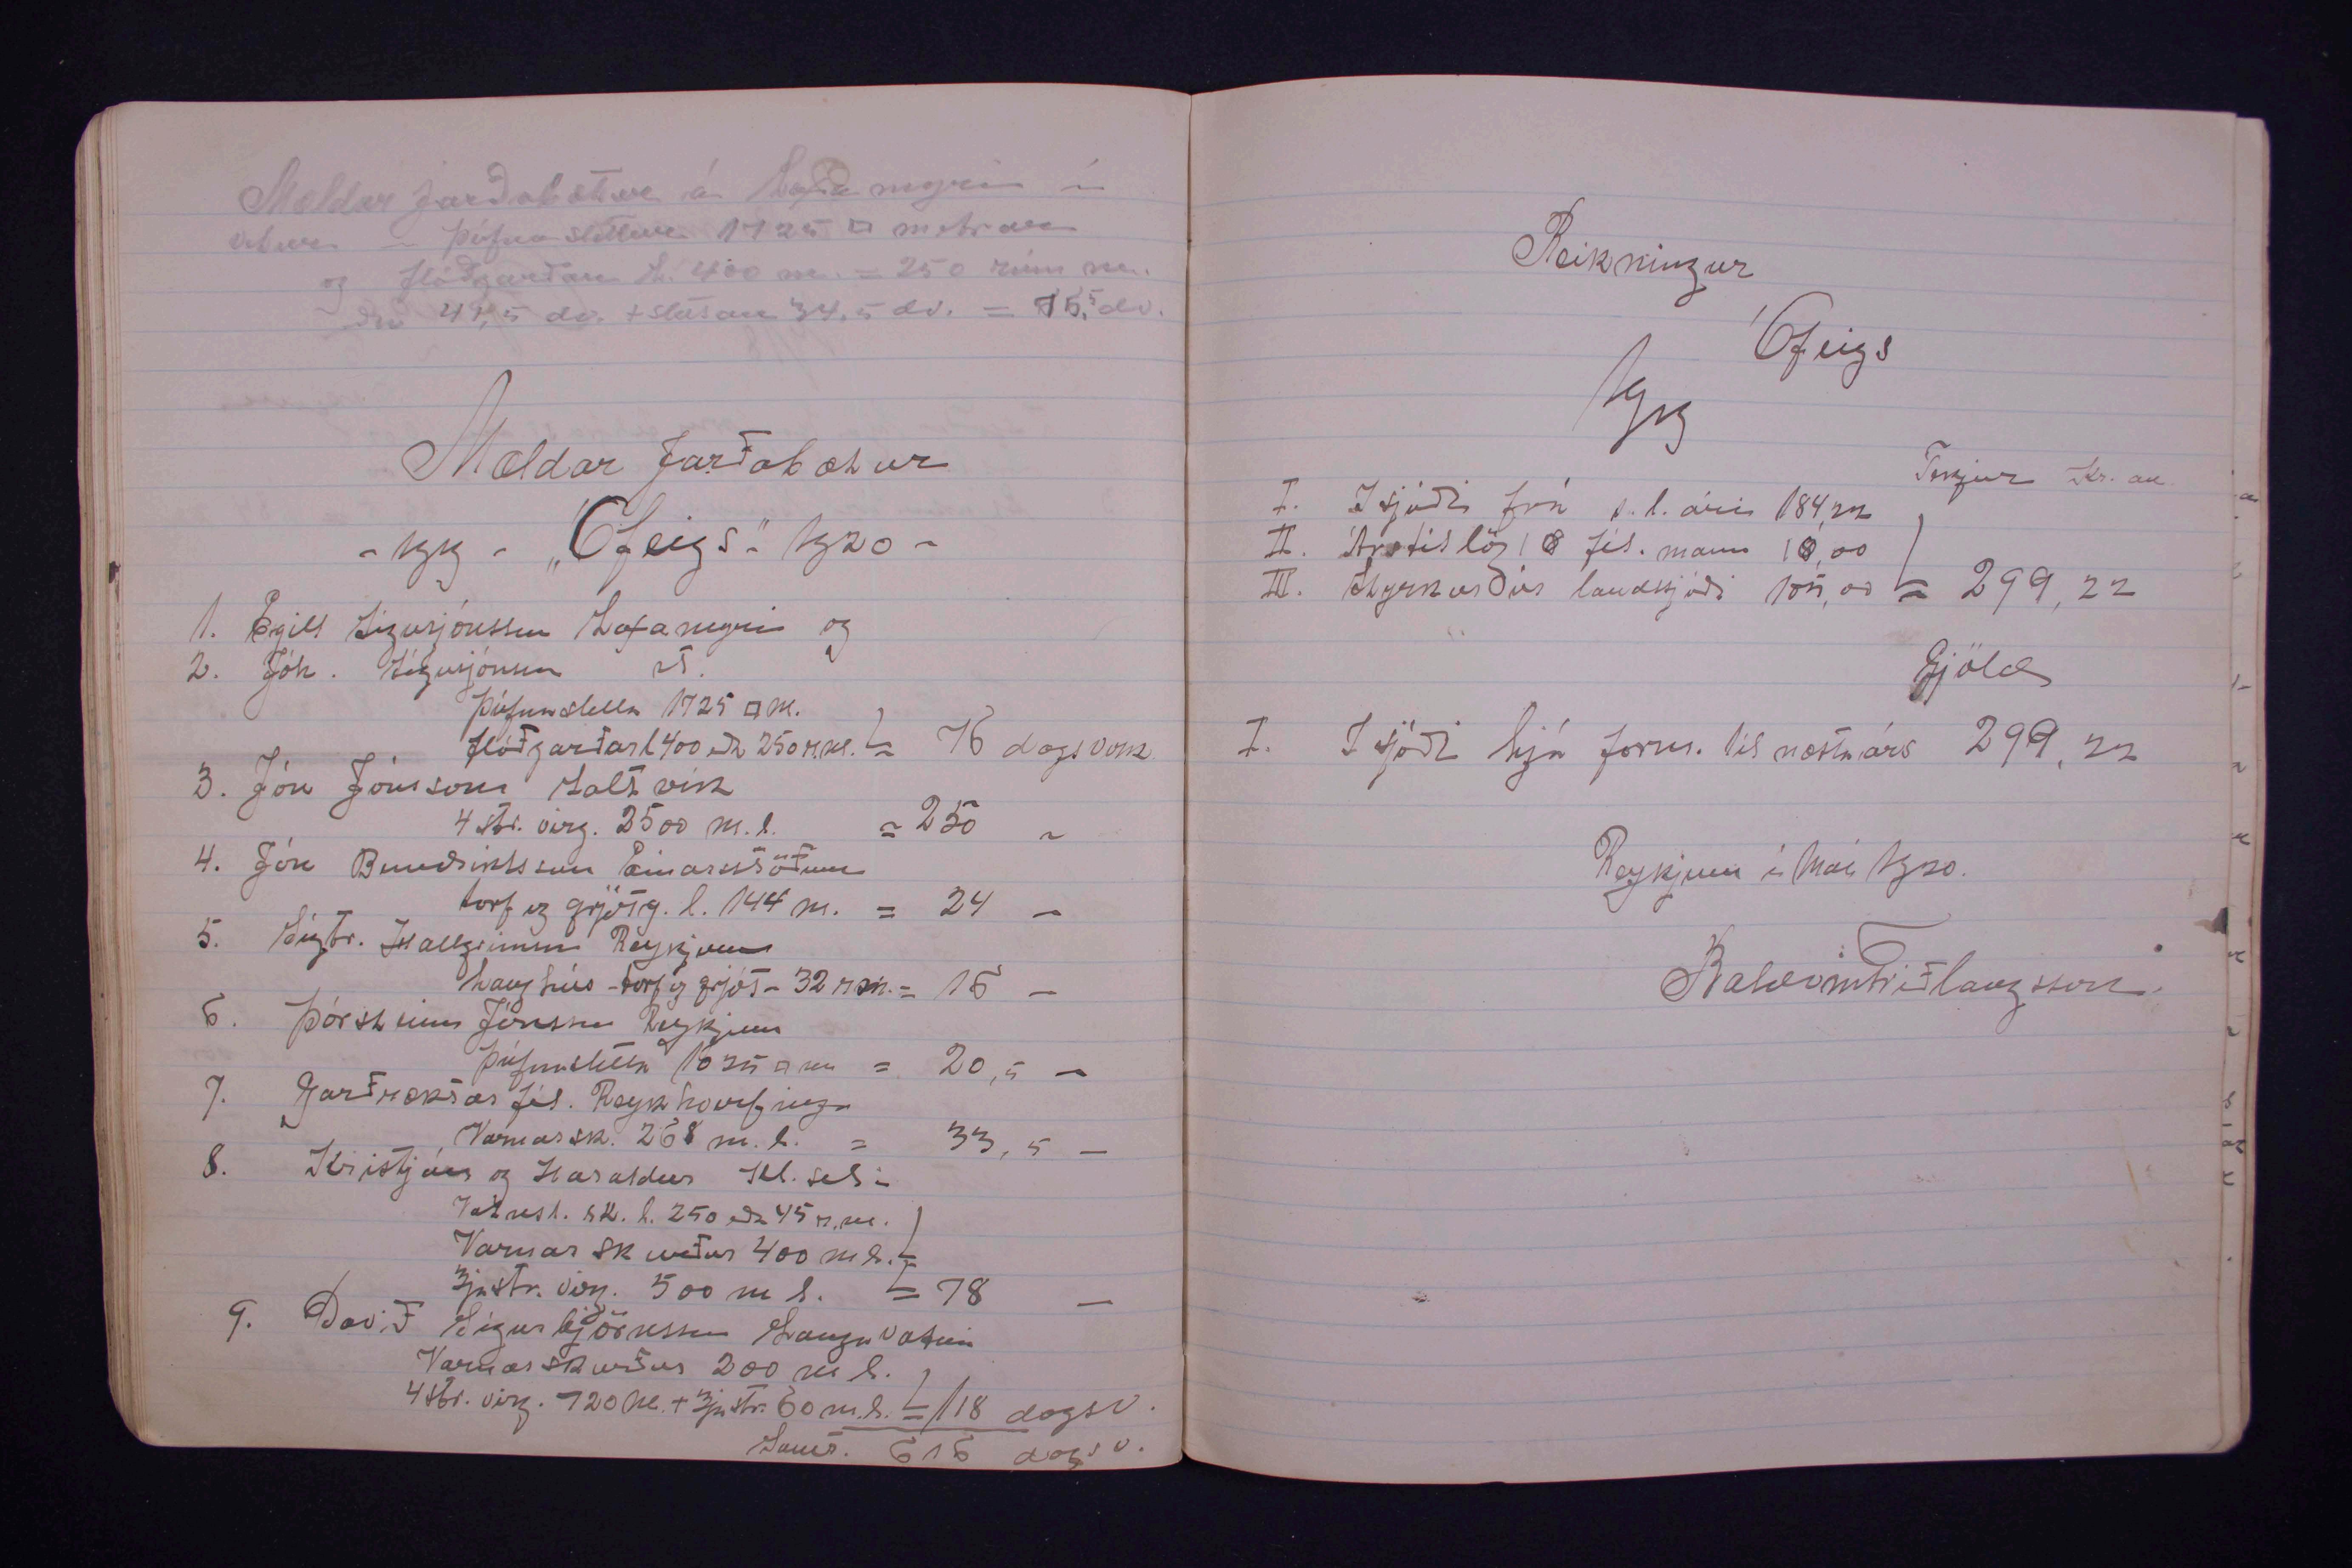 Mældar jarðabætur á Laxamýri í
þúfnasléttur 1725 □ metrar
og flóðgarðar L. 400 m. = 250 rúm m.
41,5 dv. + sléttan 34,5 dv. = 75,5 dv.
Mældar Jarðabætur
- 1919 - „Ófeigs" 1920 -
1. Egill Sigurjónsson Laxamýri og
2. Jóh. Sigurjónsson s.st.
Þúfnaslétta 1725 □ m.
flóðgarðar l 400 eða 250 r.m. = 76 dagsverk
3. Jón Jónsson Saltvík
4 str. virg. 2500 m. l. = 250 "
4. Jón Benediktsson Einarsstöðum
torf og grjótg. l. 144 m. = 24 -
5. Sigtr. Hallgrímsson Reykjum
torf og grjót - 32 r m. = 16 -
6. Þórsteinn Jónsson Reykjum
Þúfnaslétta 1025 □ m = 20,5 -
7. Garðræktar fél. Reykhverfinga
Varnarsk. 268 m. l. = 33,5 -
8. Kristján og Haraldur Kl. seli
Vatnsl. sk. l. 250 eða 45 r. m.
Varnarskurður 400 m l.
3ja str. virg. 500 m l. = 78 -
9. Davíð Sigurbjörnsson Langavatni
Varnarskurður 200 m l.
4 str. virg. 720 m. + 3ja str. 60 m. l. = 118 dagsv.
Samt. 616 dagsv.
Reikningur
Ófeigs
1919
Tekjur Kr. au
I. Í sjóði frá s. l. ári 184,22
II. Árstillög 10 fél. manna 10,00
III. Styrkur úr landssjóði 105,00 = 299,22
Gjöld
I. Í sjóði hjá form. til næsta árs 299,22
Reykjum í Maí 1920.
Baldvin Friðlaugsson.